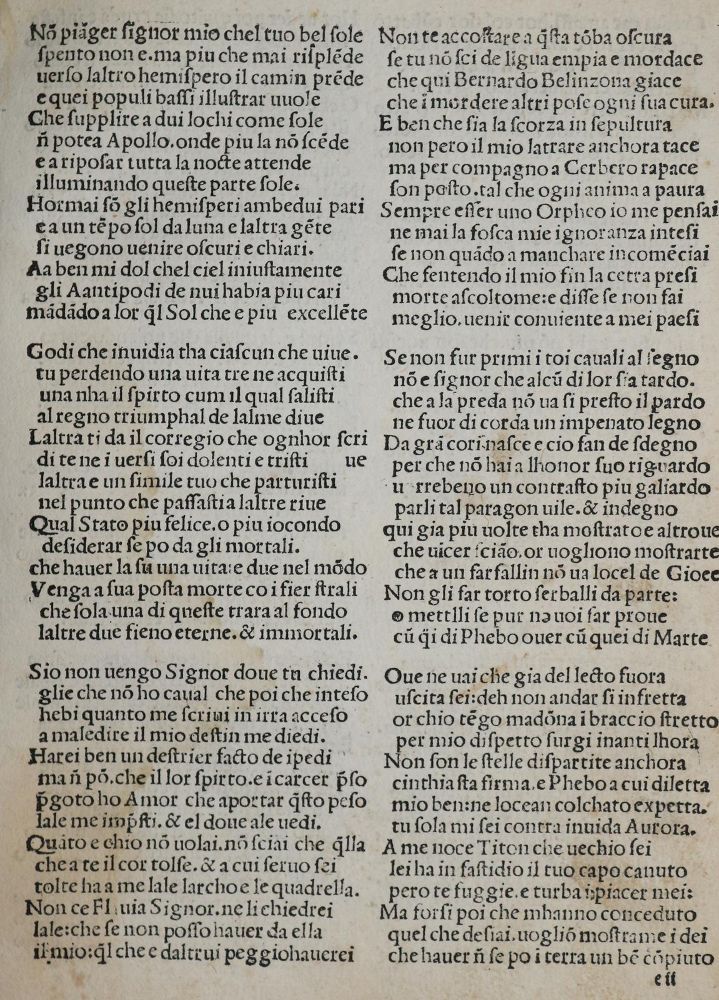 Nō piāger ſignor mio chel tuo bel ſole
ſpento non e.ma piu che mai riſplēde
uerſo laltro hemiſpero il camin prēde
e quei populi baſſi illuſtrar uuole
Che ſupplire a dui lochi come ſole
ñ potea Apollo.onde piu la nō ſcēde
e a ripoſar tutta la nocte attende
illuminando queſte parte ſole.
Hormai ſō gli hemiſperi ambedui pari
e a un tēpo ſol da luna e laltra gēte
ſi uegono uenire oſcuri e chiari.
Aa ben mi dol chel ciel iniuſtamente
gli Aantipodi de nui habia piu cari
mādādo a lor q̄l Sol che e piu excellēte
Godi che inuidia tha ciaſcun che uiue.
tu perdendo una uita tre ne acquiſti
una nha il ſpirto cum il qual ſaliſti
al regno triumphal de lalme diue
Laltra ti da il corregio che ognhor ſcri
di te ne i uerſi ſoi dolenti e triſti ue
laltra e un ſimile tuo che parturiſti
nel punto che paſſaſti a laltre riue
Qual Stato piu felice.o piu iocondo
deſiderar ſe po da gli mortali.
che hauer la ſu una uita:e due nel mōdo
Venga a ſua poſta morte co i fier ſtrali
che ſola una di queſte trara al fondo
laltre due fieno eterne.& immortali.
Sio non uengo Signor doue tu chiedi.
glie che nō ho caual che poi che inteſo
hebi quanto me ſcriui in irra acceſo
a maledire il mio deſtin me diedi.
Harei ben un deſtrier facto de ipedi
ma ñ pō.che il lor ſpirto.e i carcer p̄ſo
p̄goto ho Amor che aportar q̄ſto peſo
lale me imp̄ſti.& el doue ale uedi.
Quāto e chio nō uolai.nō ſciai che q̄lla
che a te il cor tolſe.& a cui ſeruo ſei
tolte ha a me lale larcho e le quadrella.
Non ce Fluuia Signor.ne li chiedrei
lale:che ſe non poſſo hauer da ella
il mio:q̄l che e daltrui peggio hauerei
Non te accoſtare a q̄ſta tōba oſcura
ſe tu nō ſei de līgua empia e mordace
che qui Bernardo Belinzona giace
che ī mordere altri poſe ogni ſua cura.
E ben che ſia la ſcorza in ſepultura
non pero il mio latrare anchora tace
ma per compagno a Cerbero rapace
ſon poſto.tal che ogni anima a paura
Sempre eſſer uno Orpheo io me penſai
ne mai la foſca mie ignoranza inteſi
ſe non quādo a manchare incomēciai
Che ſentendo il mio fin la cetra preſi
morte aſcoltome:e diſſe ſe non fai
meglio.uenir conuiente a mei paeſi
Se non fur primi i toi cauali al ſegno
nō e ſignor che alcū di lor ſia tardo.
che a la preda nō ua ſi preſto il pardo
ne fuor di corda un impenato legno
Da grā cori naſce e cio fan de ſdegno
per che nō hai a lhonor ſuo riguardo
u rrebeno un contraſto piu galiardo
parli tal paragon uile.& indegno
qui gia piu uolte tha moſtrato e altroue
che uicer ſciāo.or uogliono moſtrarte
che a un farfallin nō ua locel de Gioee
Non gli far torto ſerballi da parte:
o mettlli ſe pur no uoi far proue
cū q̄i di Phebo ouer cū quei di Marte
Oue ne uai che gia del lecto fuora
uſcita ſei:deh non andar ſi infretta
or chio tēgo madōna i braccio ſtretto
per mio diſpetto ſurgi inanti lhora
Non ſon le ſtelle diſpartite anchora
cinthia ſta firma.e Phebo a cui diletta
mio ben:ne locean colchato expetta.
tu ſola mi ſei contra inuida Aurora.
A me noce Titon che uechio ſei
lei ha in faſtidio il tuo capo canuto
pero te fuggie.e turba i piacer mei:
Ma forſi poi che mhanno conceduto
quel che deſiai.uogliō moſtrarme i dei
che hauer ñ ſe po i terra un bē cōpiuto
e ii